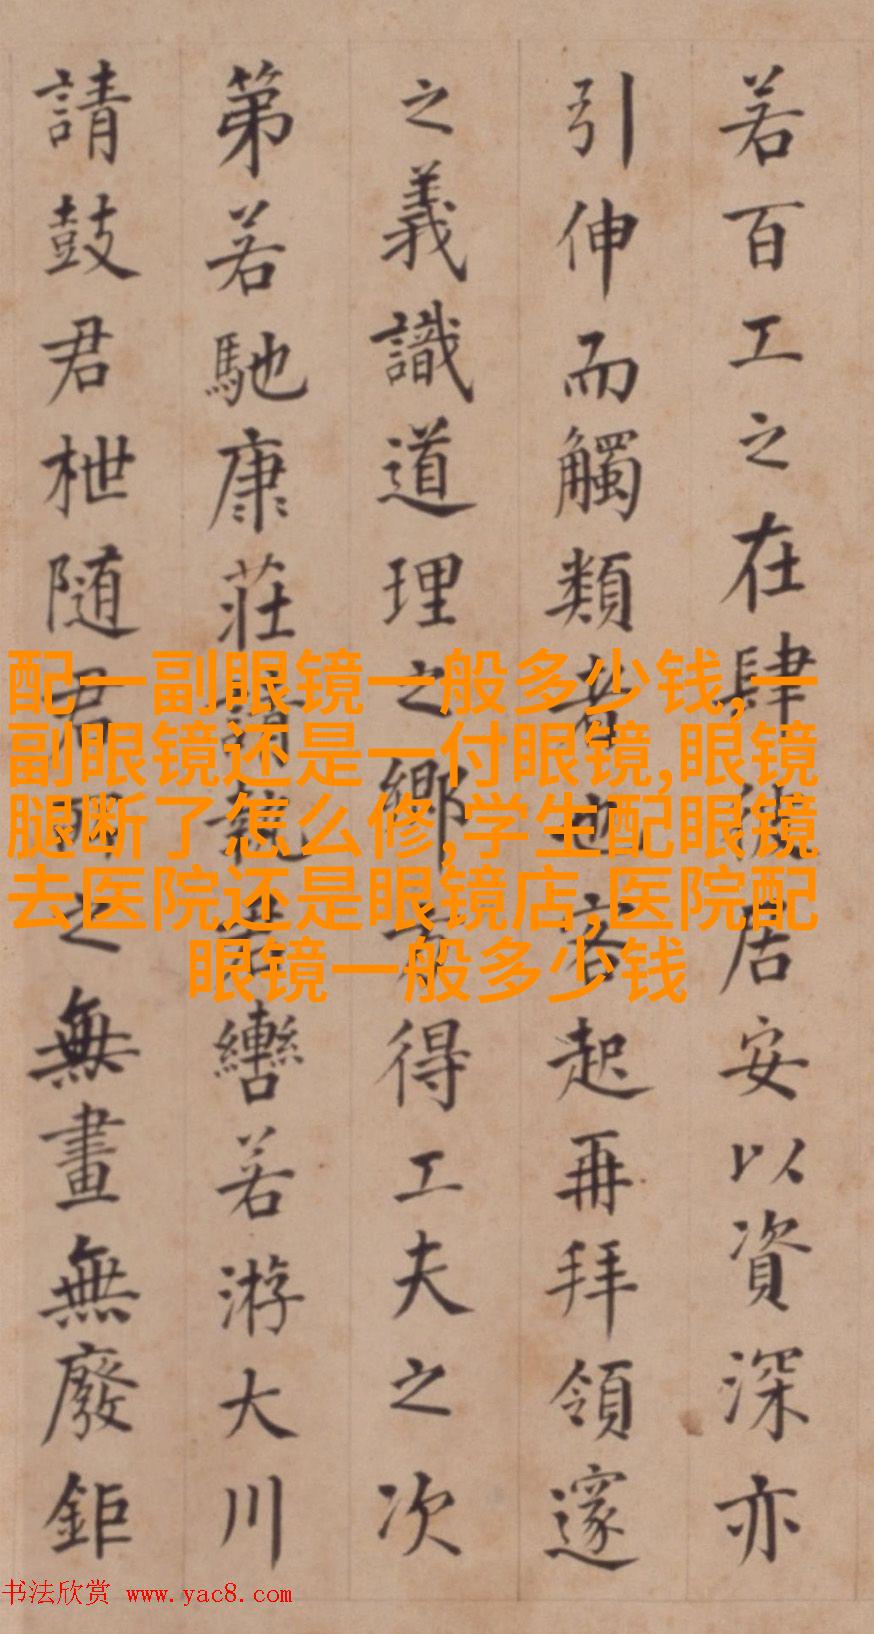 若百工之在肆居安以資深亦
引伸而觸類者也客起再拜領邃
之義識道理之鄉得工夫之次
第若馳康莊請執君轡若游大川
請鼓君枻随君所之無畫無廢鉅
配一副眼镜一般多少钱,一
副眼镜还是一付眼镜,眼镜
腿断了怎么修,学生配眼镜
去医院还是眼镜店,医院配
眼镜一般多少钱
书法欣赏 www.yac8.com